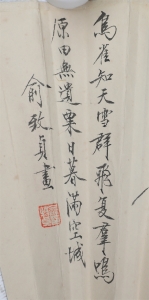 鳥雀知天雪群飛复羣鳴
原田無遺粟日暮滿空城
俞致貞畫